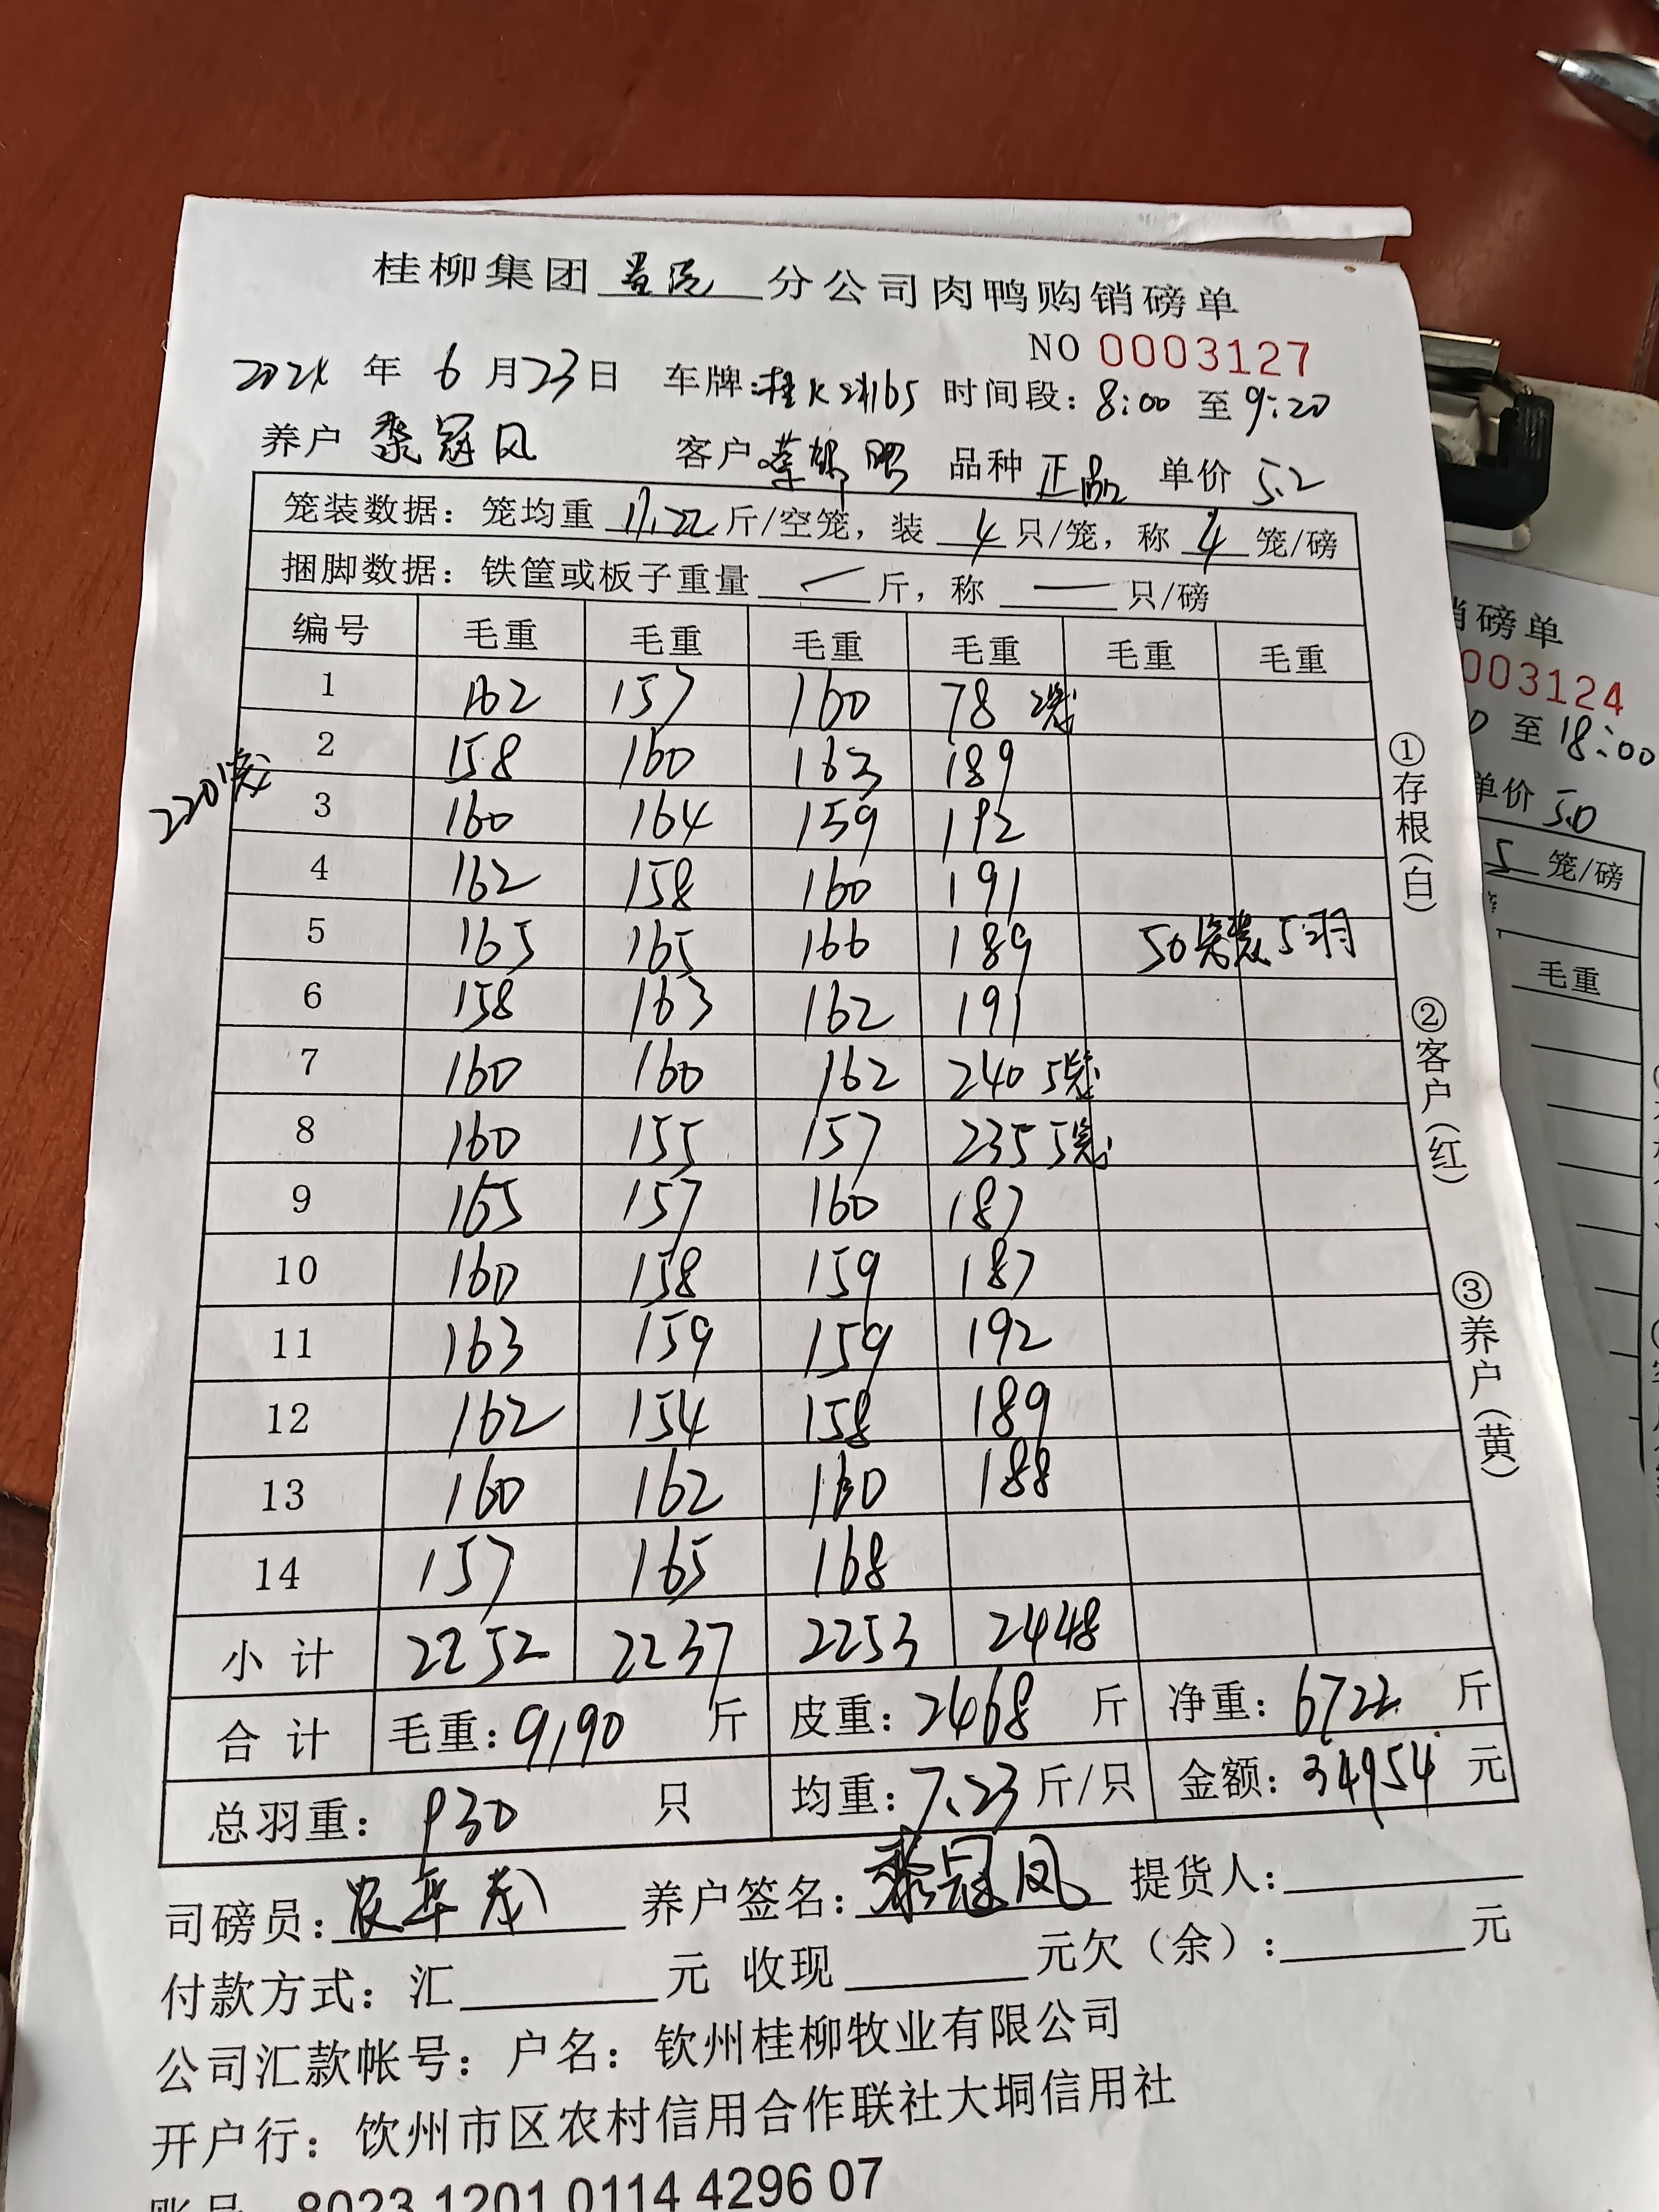 桂柳集团 分公司肉鸭购销磅单
NO 0003127
2024 年 6 月 23 日 车牌:桂K 时间段: 8:00 至 9:20
养户 黎冠凤 客户 蔡 品种 正品 单价 5.2
笼装数据: 笼均重 11.22 斤/空笼, 装 4 只/笼, 称 4 笼/磅
捆脚数据: 铁筐或板子重量 斤, 称 — 只/磅
编号 毛重 毛重 毛重 毛重 毛重 毛重
1 162 157 160 78 2笼
2 158 160 163 189
220笼
3 160 164 159 192
4 162 158 160 191
5 165 165 166 189 50笼装5羽
6 158 163 162 191
7 160 160 162 240 5笼
8 160 155 157 235 5笼
9 165 157 160 187
10 160 158 159 187
11 163 159 159 192
12 162 154 158 189
13 160 162 160 188
14 157 165 168
小计 2252 2237 2253 2448
合计 毛重: 9190 斤 皮重: 2468 斤 净重: 6722 斤
总羽重: 930 只 均重: 7.23 斤/只 金额: 34954 元
司磅员: 农华茂 养户签名: 黎冠凤 提货人:
付款方式: 汇 元 收现 元欠(余): 元
公司汇款帐号: 户名: 钦州桂柳牧业有限公司
开户行: 钦州市区农村信用合作联社大垌信用社
账号 8023 1201 0114 4296 07
①存根(白)
②客户(红)
③养户(黄)
销磅单
003124
0 至 18:00
单价 5.0
5 笼/磅
毛重